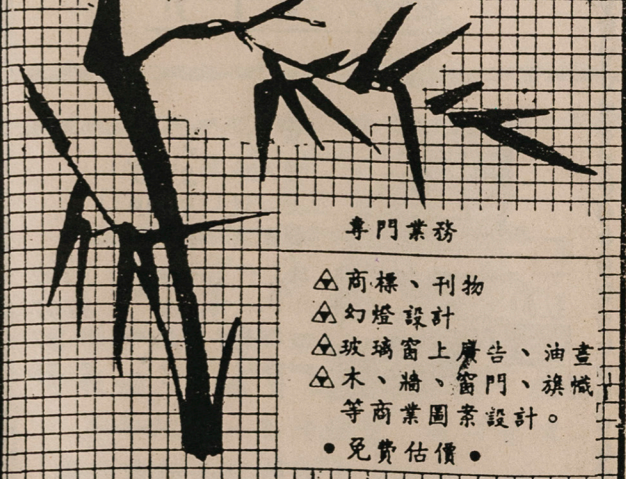 專門業務
商標、刊物
幻燈設計
玻璃窗上廣告、油畫
木、牆、窗門、旗幟
等商業圖案設計。
•免費估價•